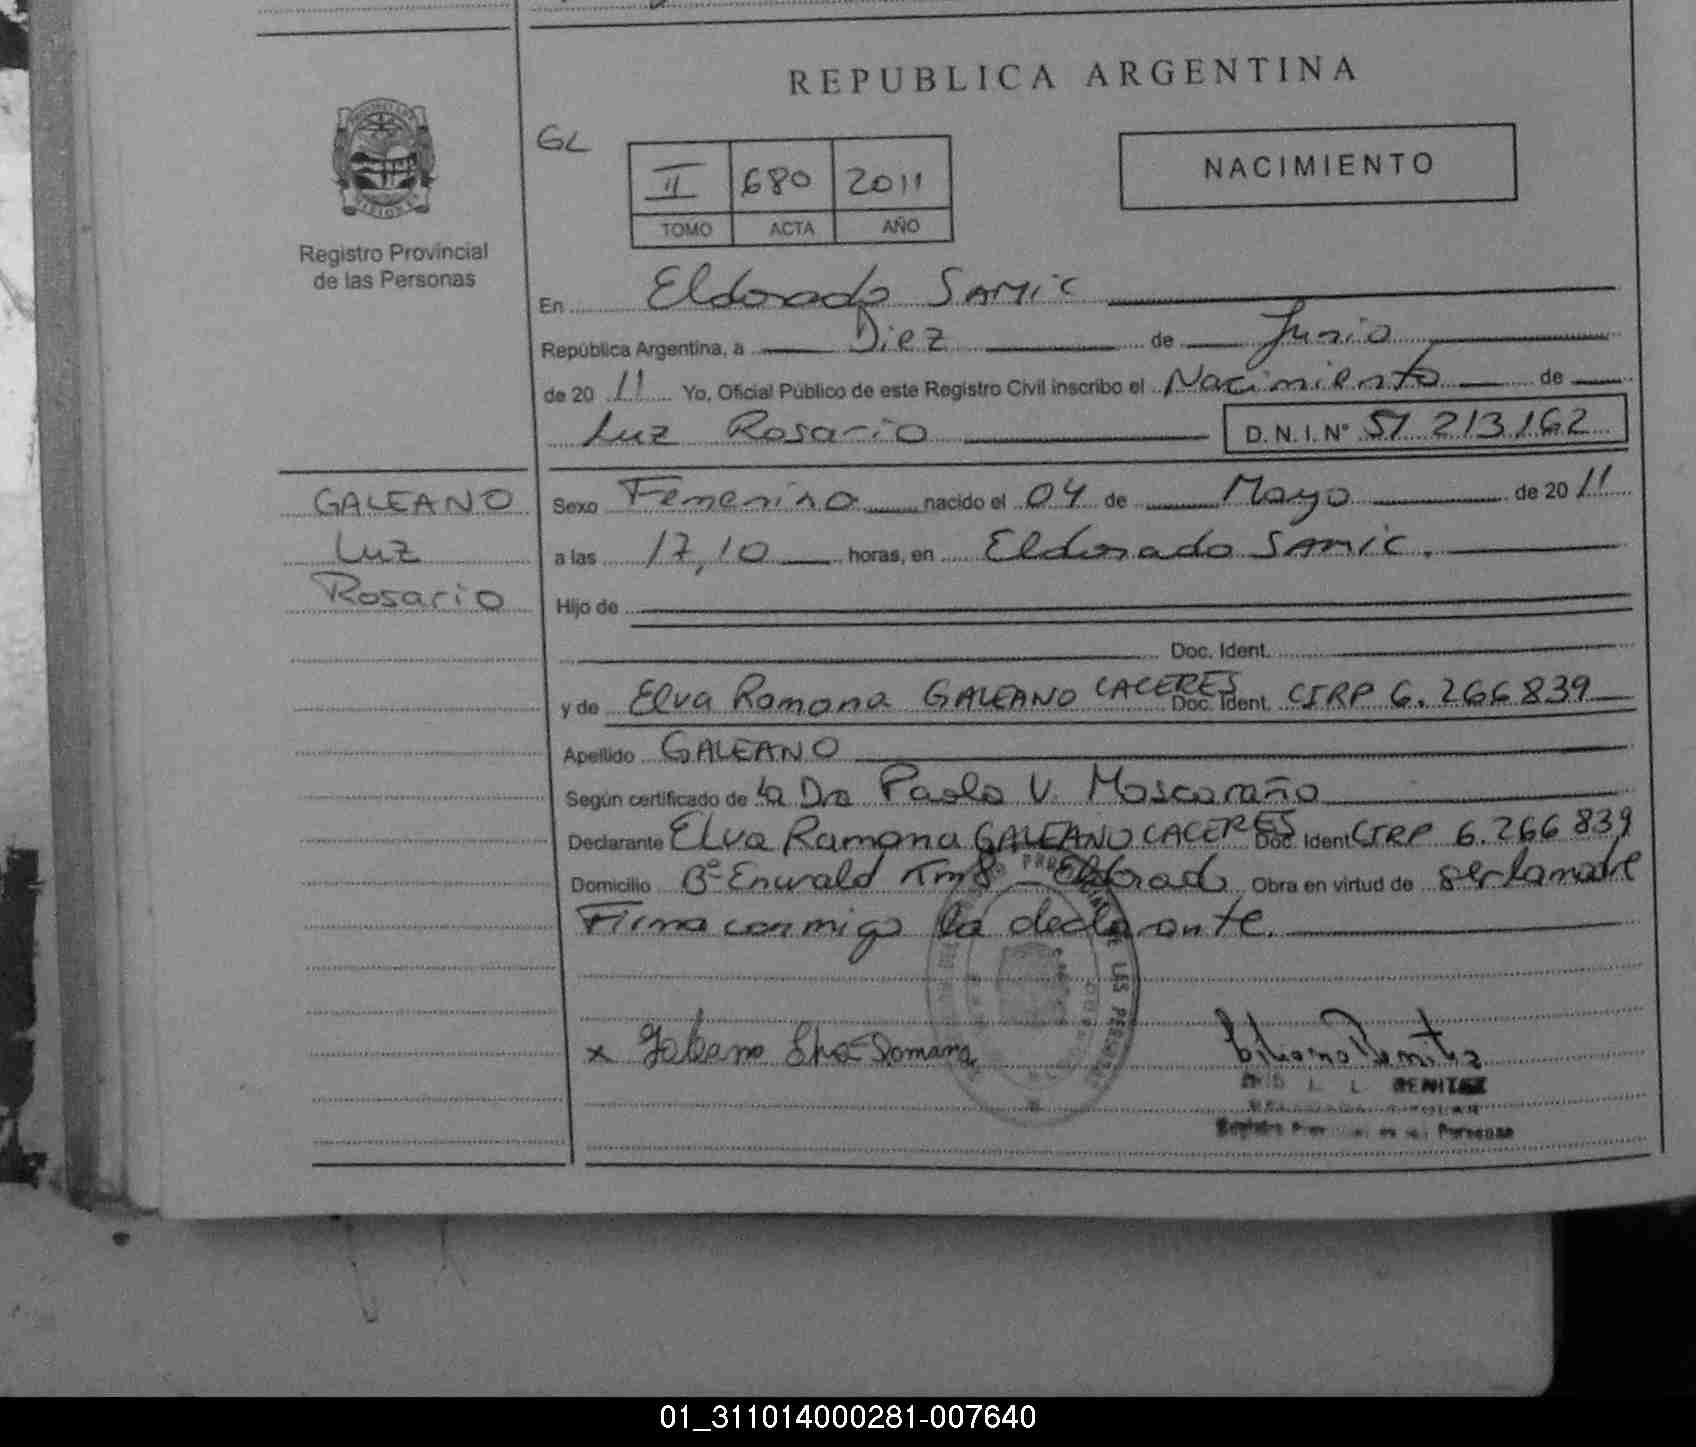 REPUBLICA ARGENTINA
GL
II 680 2011
TOMO ACTA AÑO
NACIMIENTO
Registro Provincial
de las Personas
En Eldorado SAMIC
República Argentina, a Diez de Junio
de 20 11 Yo, Oficial Público de este Registro Civil inscribo el Nacimiento de
Luz Rosario D. N. I. N° 51 213162
GALEANO
Luz
Rosario
Sexo Femenino nacido el 04 de Mayo de 20 11
a las 17,10 horas, en Eldorado SAMIC.
Hijo de
Doc. Ident.
y de Elva Ramona GALEANO CACERES Doc. Ident. CIRP 6.266839
Apellido GALEANO
Según certificado de la Dra Paola V. Moscoraño
Declarante Elva Ramona GALEANO CACERES Doc. Ident CIRP 6.266 839
Domicilio B° Enwald Km 8 - Eldorado Obra en virtud de ser la madre
Firma conmigo la declarante.
x Galeano Elva Romana
Liliana Benitez
BENITEZ
Registro Personas
01_311014000281-007640